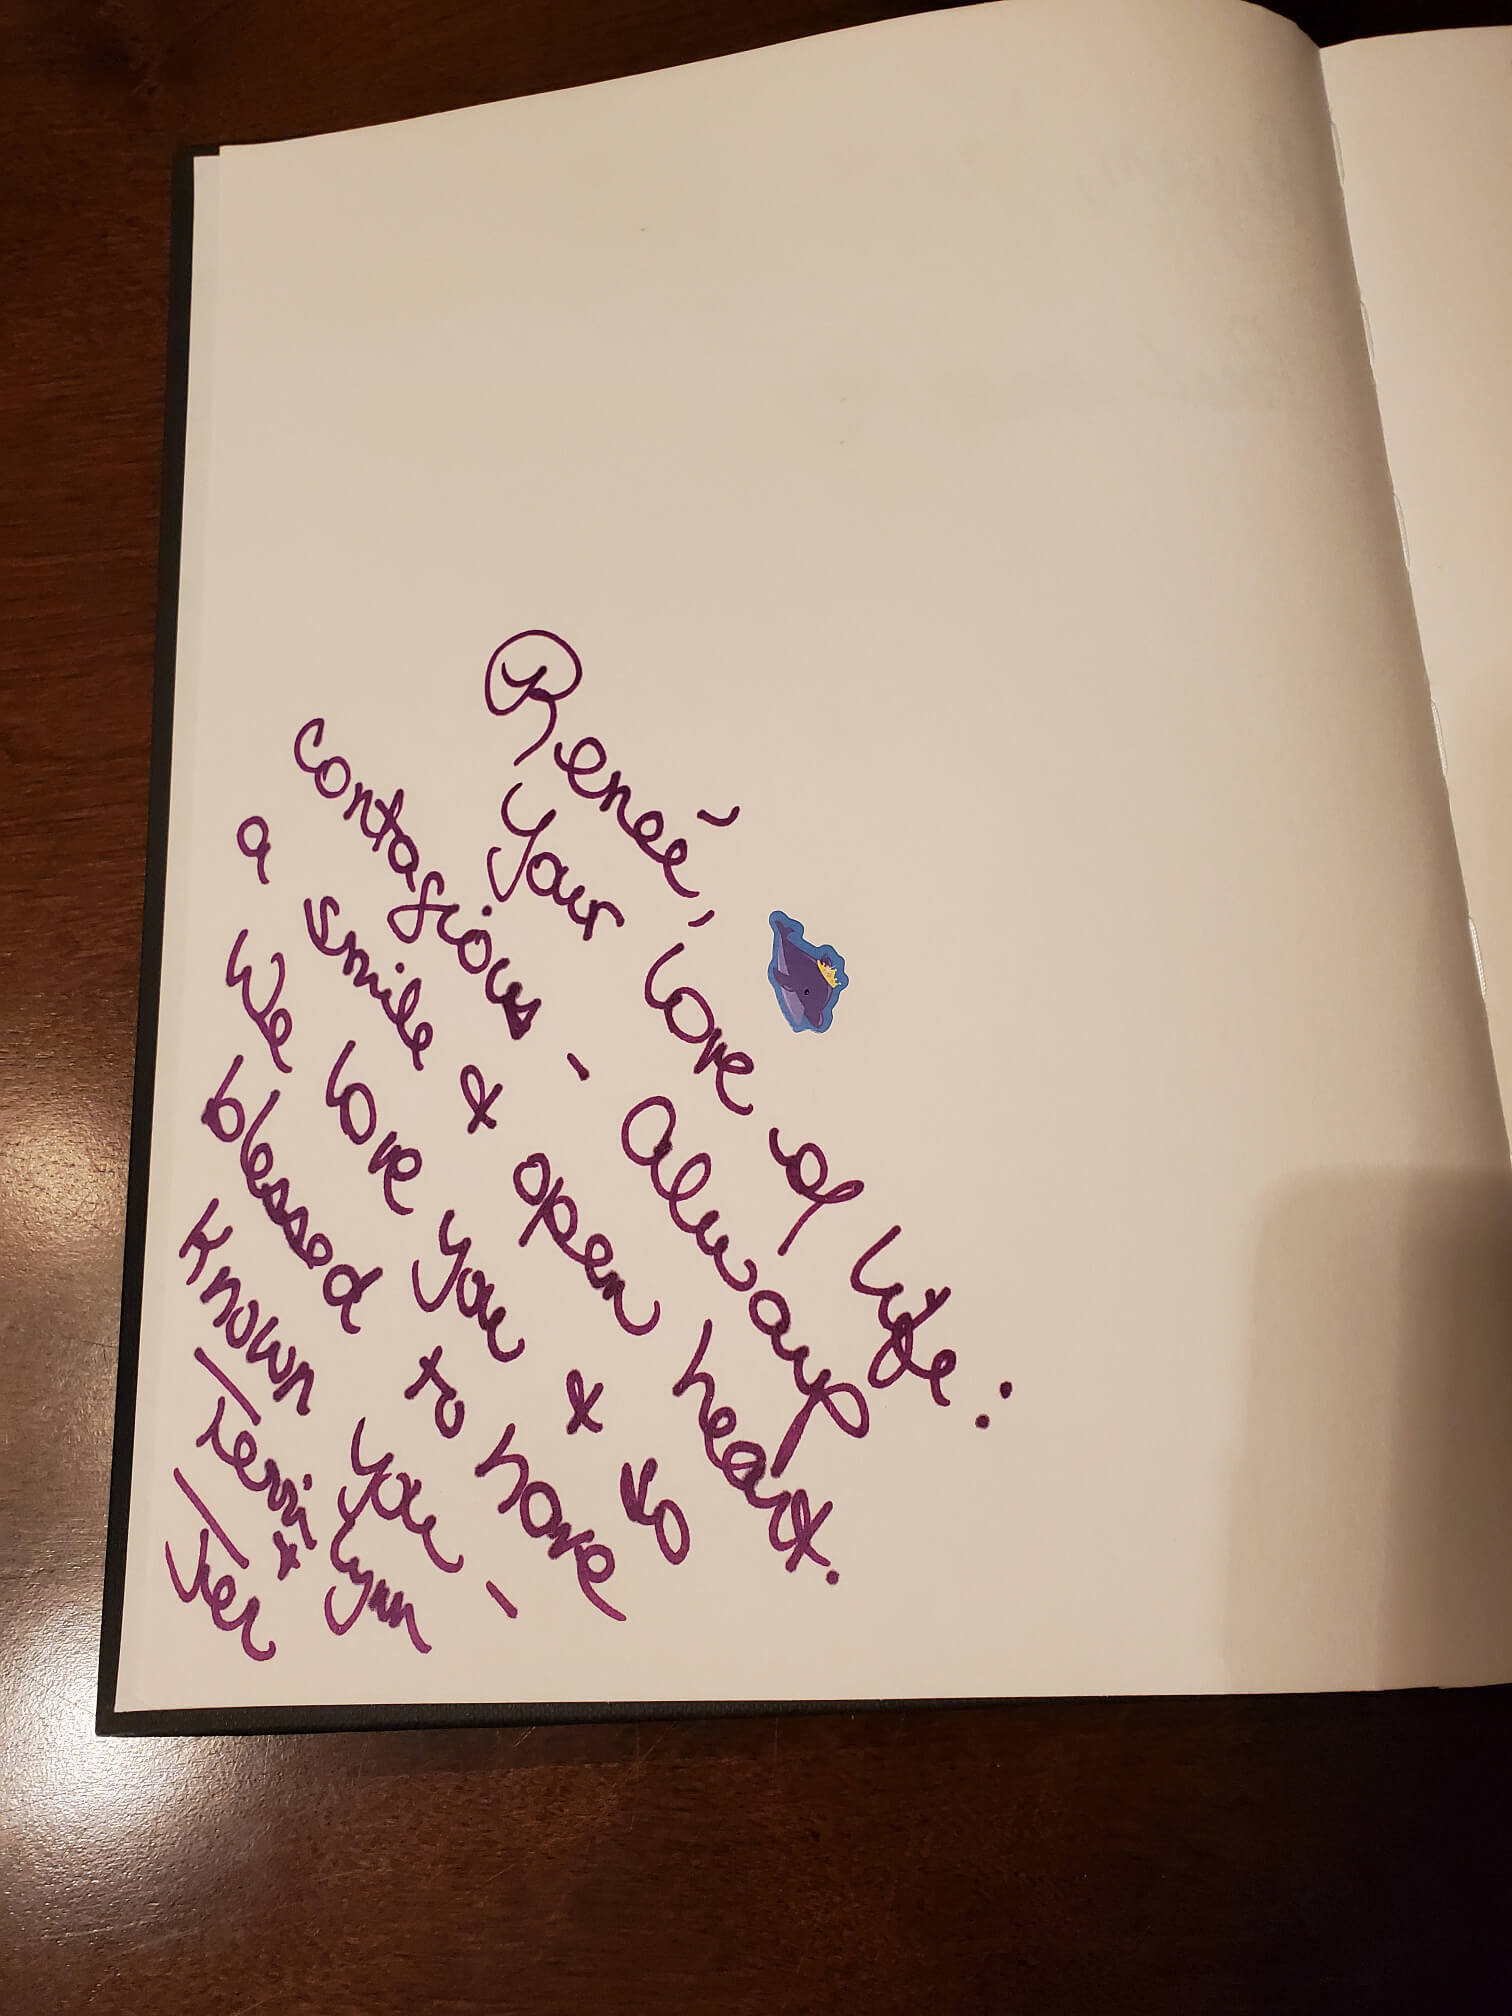 Reneé,
Your love of life:
contagious - Always
a smile & open heart.
We love you & so
blessed to have
known you -
Terri Lynn
& Jer